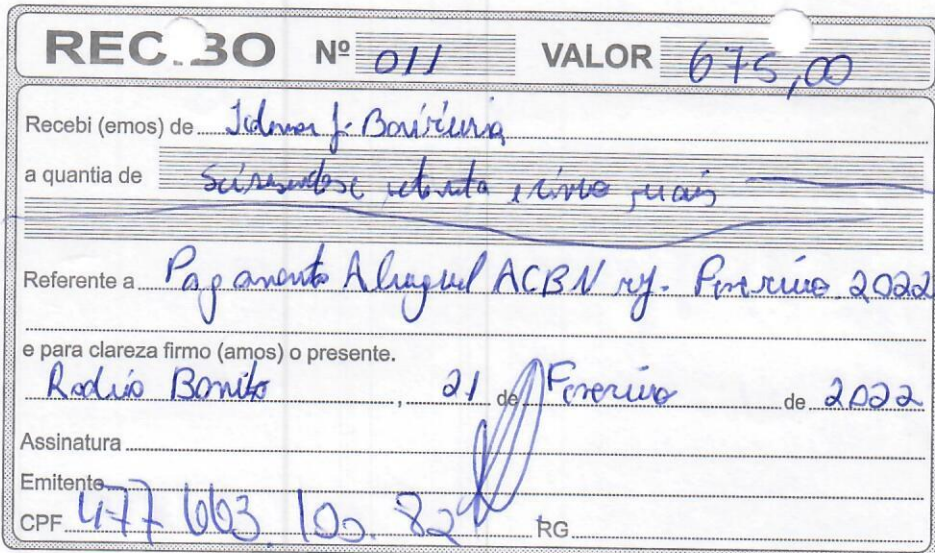 RECIBO Nº 011 VALOR 675,00
Recebi (emos) de
a quantia de Seissentos e setenta e cinco reais
Referente a Pagamento Aluguel ACBN ref. Fevereiro 2022
e para clareza firmo (amos) o presente.
Rodeio Bonito, 21 de Fevereiro de 2022
Assinatura
Emitente
CPF 477 663.100.82 RG